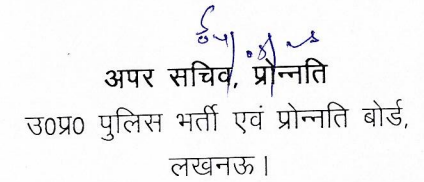 अपर सचिव, प्रोन्नति
उ०प्र० पुलिस भर्ती एवं प्रोन्नति बोर्ड,
लखनऊ।